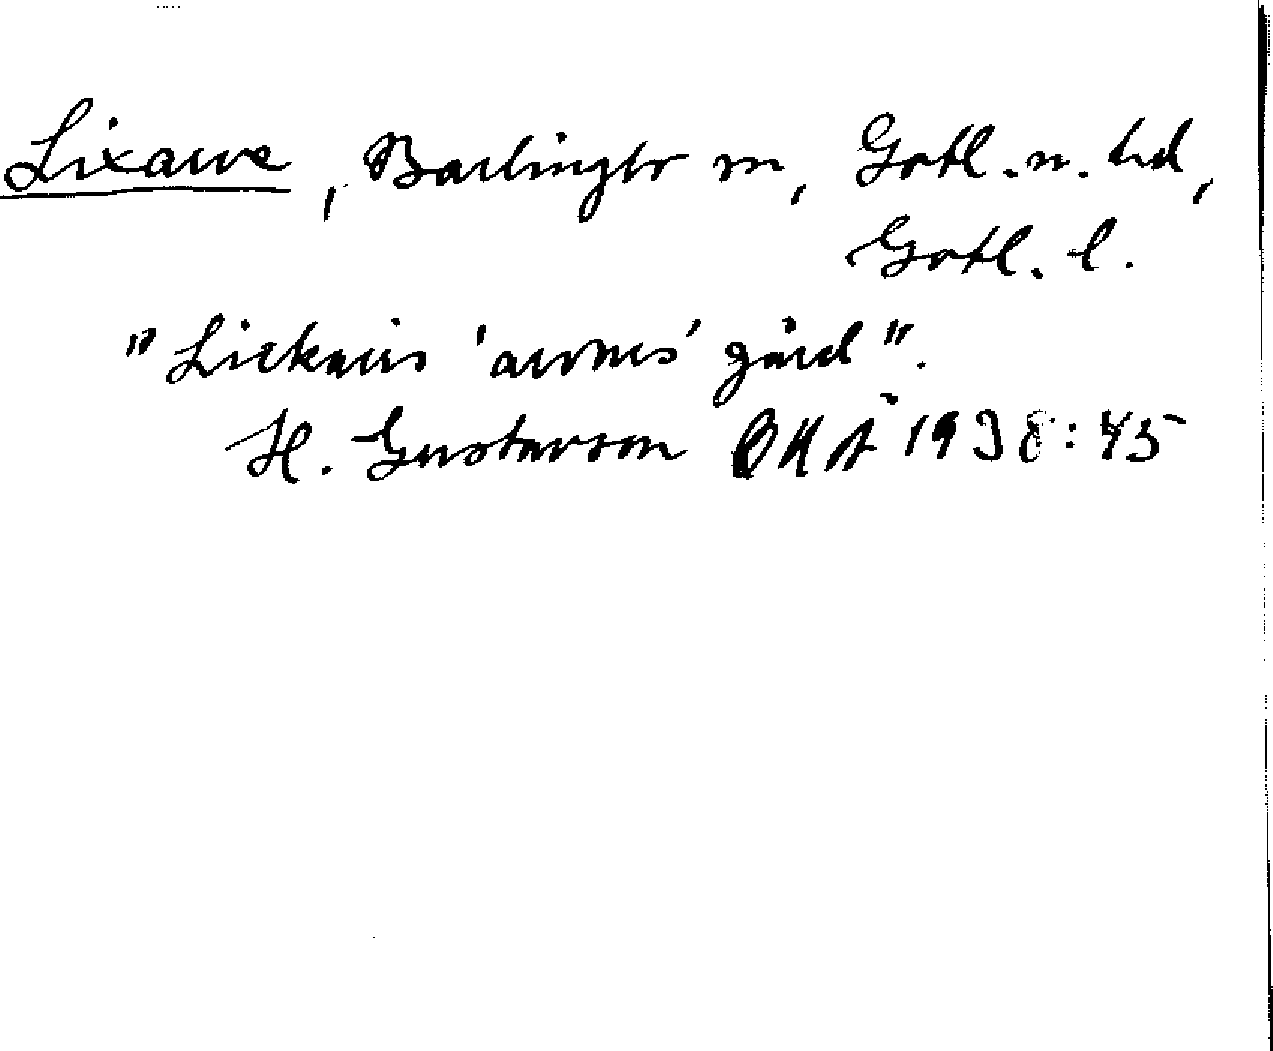 Lixarve, Barlingbo sn, Gotl. n. hd,
Gotl. l.
"Lickairs 'arvnes' gård".
H. Gustavson GHÅ 1938:45